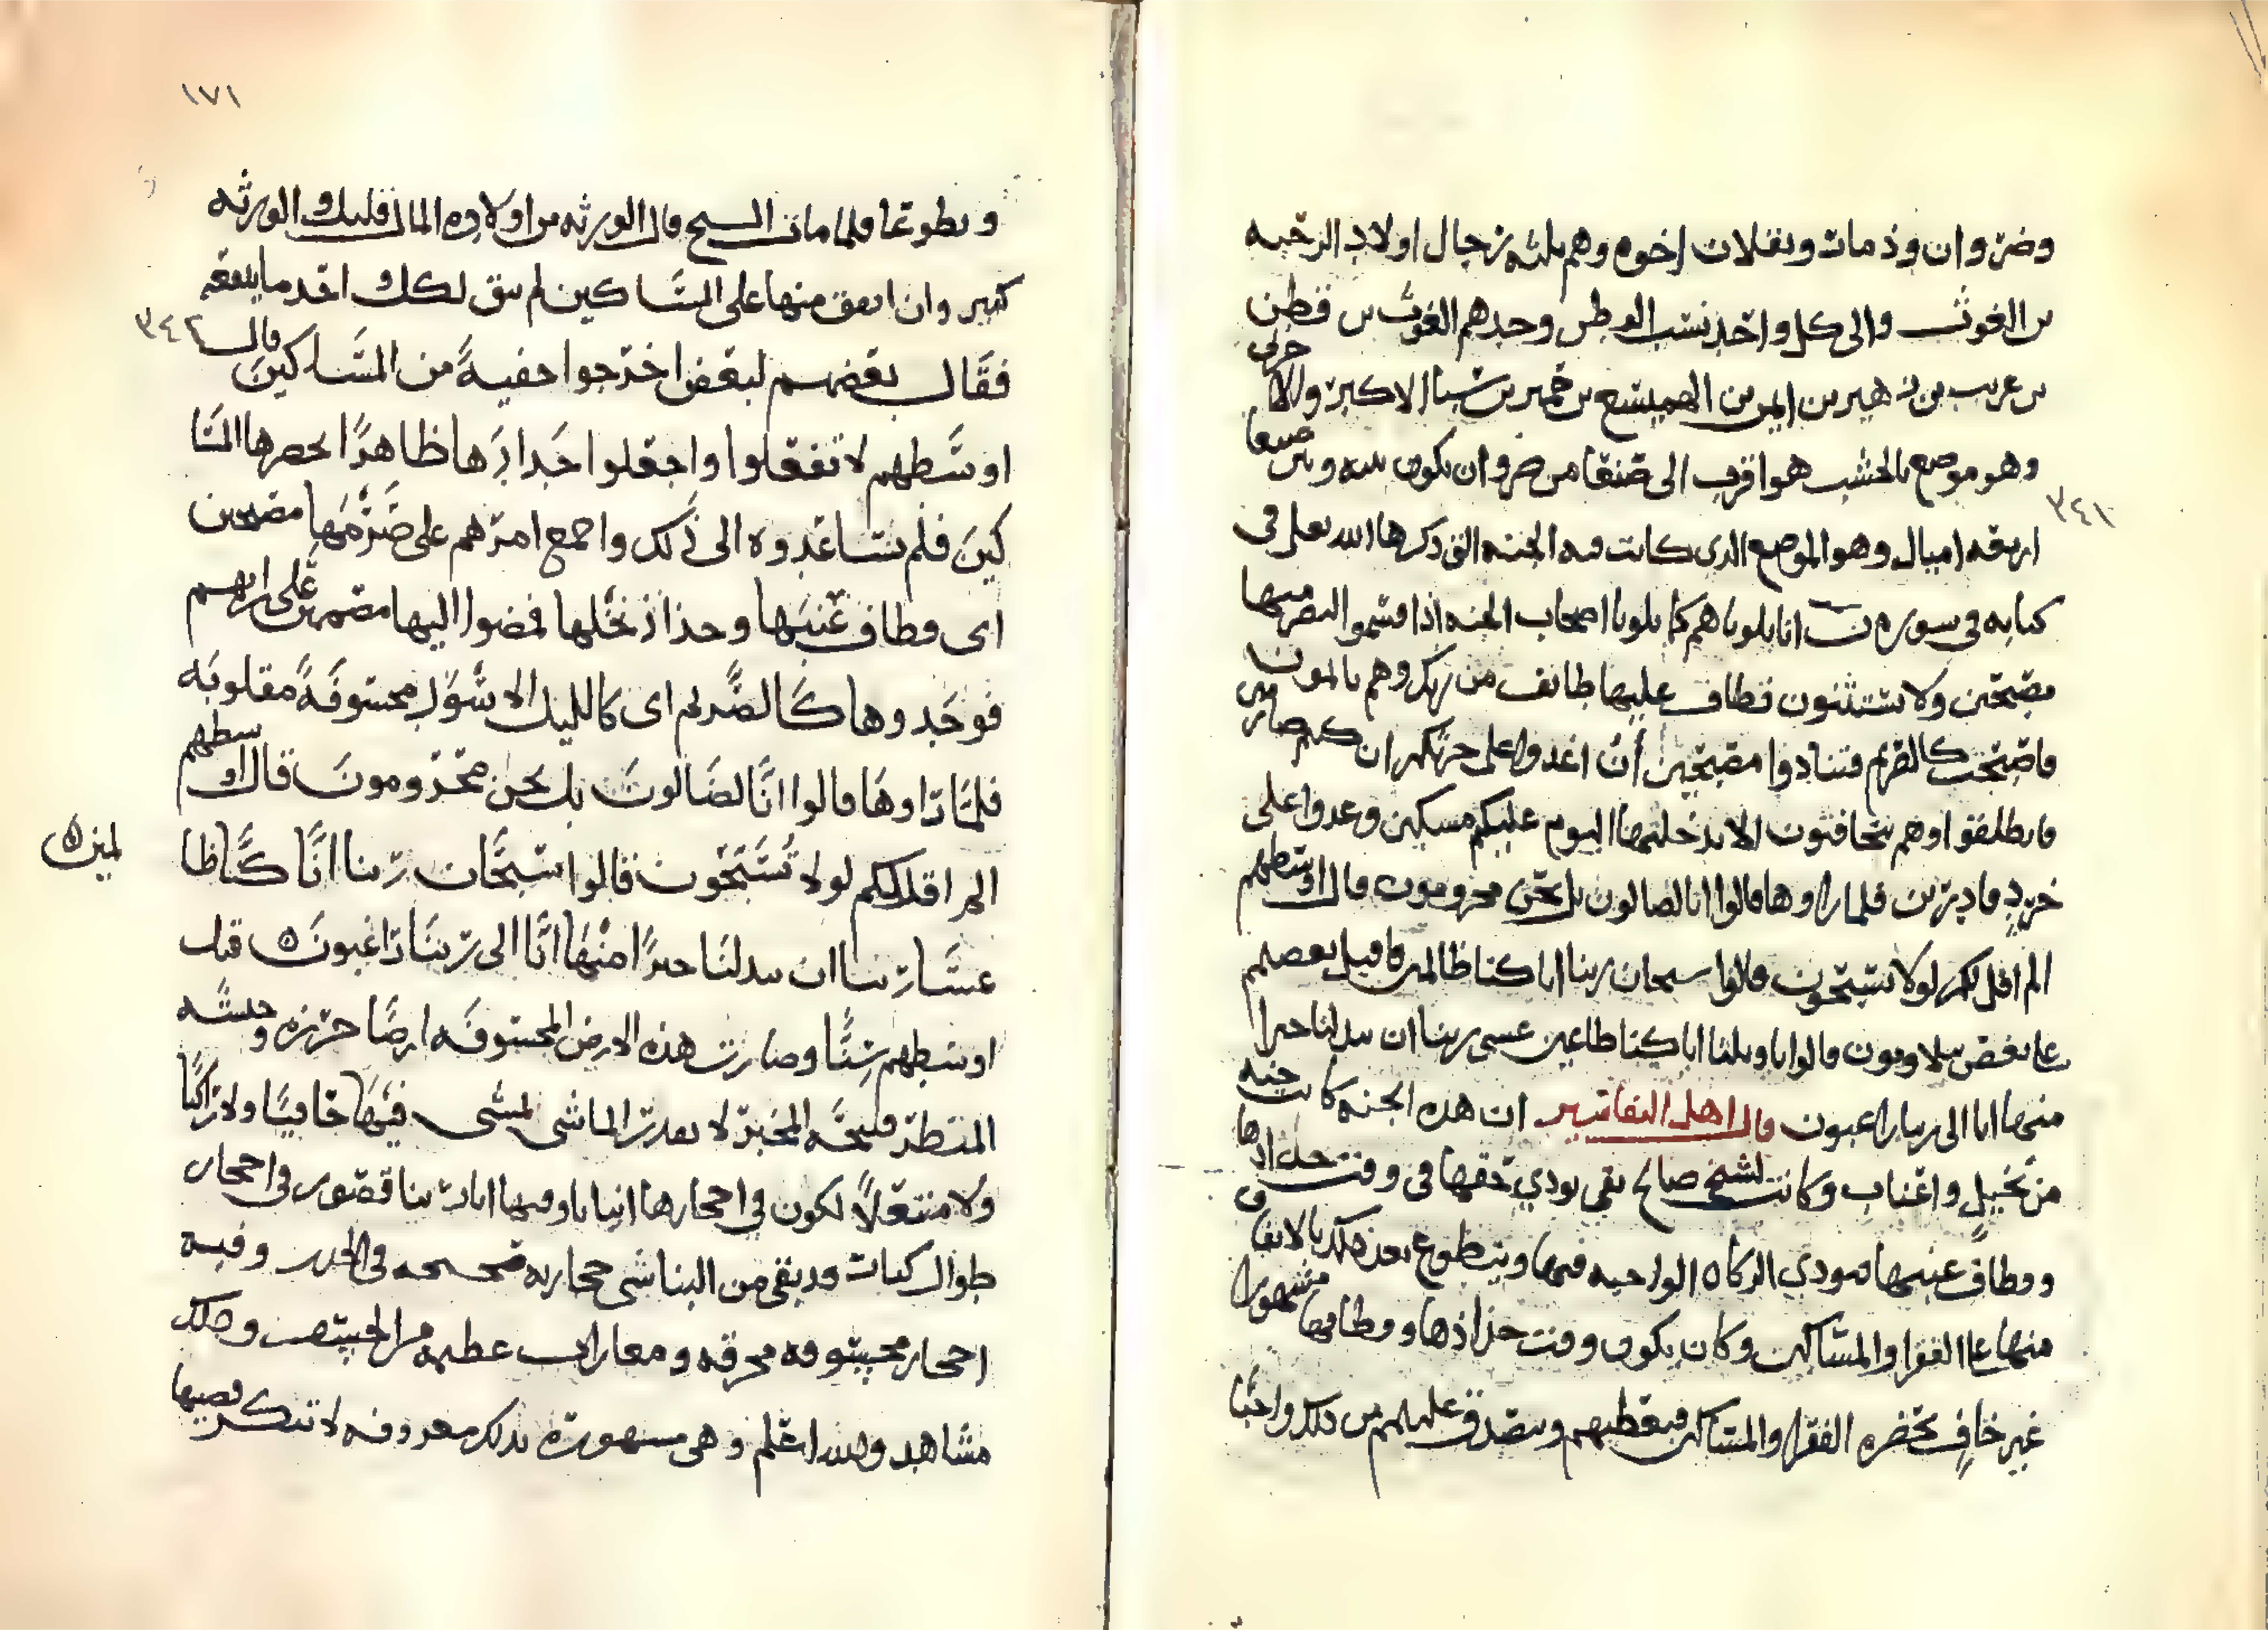 وضروان وذمات ونقلان اخوه وهم ثلثه رجال اولاد الرحبه
بن الغوث والى كل واحد نسب الوطن وجدهم الغوث بن قطن
بن عريب بن زهير بن ايمن بن الهميسع بن حمير بن سبا الاكبر
وهو موضع بالخشب هو اقرب الى صنعا من ضروان يكون بينه وبين صنعا
٣٤١
اربعه اميال وهو الموضع الذي كانت فيه الجنه التي ذكرها الله تعلى في
كتابه في سوره ن انا بلوناهم كما بلونا اصحاب الجنه اذ اقسموا ليصرمنها
مصبحين ولا يستثنون فطاف عليها طائف من ربك وهم نائمون
فاصبحت كالصريم فتنادوا مصبحين أن اغدوا على حرثكم ان كنتم صارمين
فانطلقوا وهم يتخافتون الا يدخلنها اليوم عليكم مسكين وغدوا على
حردٍ قادرين فلما راوها قالوا انا لضالون بل نحن محرومون قال اوسطهم
الم اقل لكم لولا تسبحون قالوا سبحان ربنا انا كنا ظالمين فاقبل بعضهم
على بعض يتلاومون قالوا يا ويلنا انا كنا طاغين عسى ربنا ان يبدلنا خيرا
منها انا الى ربنا راغبون قال اهل التفاسير ان هذه الجنه كانت جنه
من نخيل واعناب وكانت لشيخ صالح تقي يودي حقها في وقت
وقطاف عنبها فيودي الزكاه الواجبه فيها ويتطوع بعد ذلك بالانفاق
منها على الفقرا والمساكين وكان يكون وقت جذاذها وقطافها مشهورا
غير خافٍ تحضره الفقرا والمساكين فيعطيهم ويتصدق عليهم من ذلك واجبًا
١٧١
وتطوعا فلما مات الشيخ قال الورثه من اولاده المال قليل والورثه
كثير وان انفق منها على المساكين لم يبق لكل احد ما ينفعه
٣٤٢
فقال بعضهم لبعض اخرجوا خفيةً من المساكين قال
اوسطهم لا تفعلوا واجعلوا جدادها ظاهرًا يحضرها المسا
كين فلم يساعدوه الى ذلك واجمع امرهم على صَرْمها مصبحين
اى قطاف عنبها وجذاذ نخلها فمضوا اليها مصممين على رايهم
فوجدوها كالصَّريم اى كالليل الاسود مخسوفةً مقلوبه
فلما راوها قالوا انَّا لضَالون بل نحن محرومونَ قال اوسطهم
الم اقل لكم لولا تُسَبّحون قالوا سبحان ربنا انَّا كُنَّا ظا
لمين ٥
عسَا ربنا ان يبدلنَا خيرًا منْهَا انَّا الى ربنَا راغبونَ ٥ قيل
اوسطهم سِنًّا وصارت هذه الارض المخسوفه ارضًا حرزه وحشه
المنظر قبيحَه المخبر لا يقدر الماشى يمشى فيهَا حافيًا ولا راكبًا
ولا منتعلاً لكون في احجارها انيابا وفيها اثار بنا قصور في احجار
طوال كبات وربقى من البنا شى حجاره صحيحه في الجدر وفيه
احجار مخسوفه محرقه ومغارات عظيمه من الخسف وذلك
مشاهد والله اعلم وهى مشهوره بذلك معروفه لا تنكر قصتها